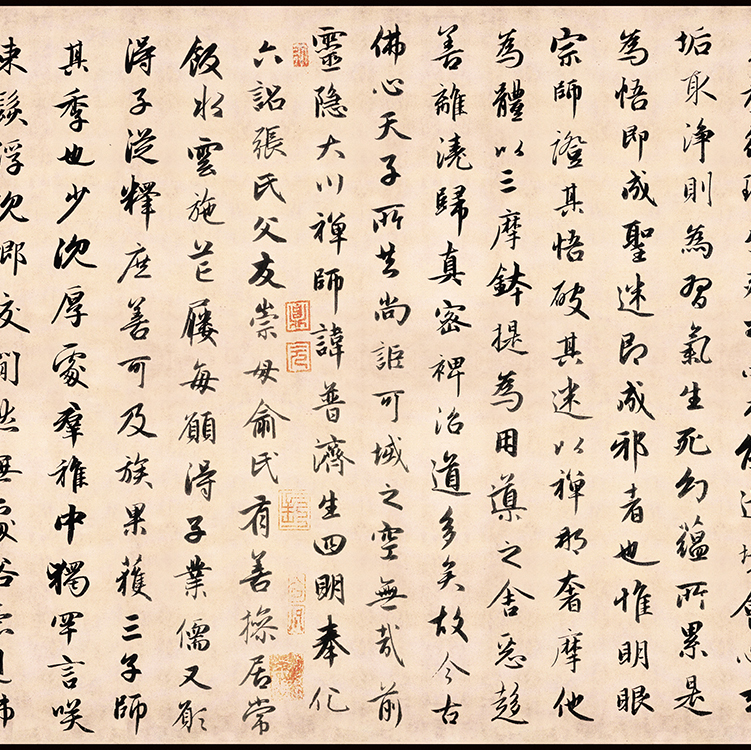 垢取淨則為習氣生死幻蘊所累是
為悟即成聖迷即成邪者也惟明眼
宗師證其悟破其迷以禪那奢摩他
為體以三摩鉢提為用導之舍惡趍
善離澆歸真密裨治道多矣故今古
佛心天子所共尚詎可域之空無哉前
靈隱大川禪師諱普濟生四明奉化
六詔張氏父友崇母俞氏有善操居常
飯水雲施芒屨每願得子業儒又願
得子從釋庶善可及族果獲三子師
其季也少沈厚處羣稚中獨罕言咲
束髮浮沈鄉校閒